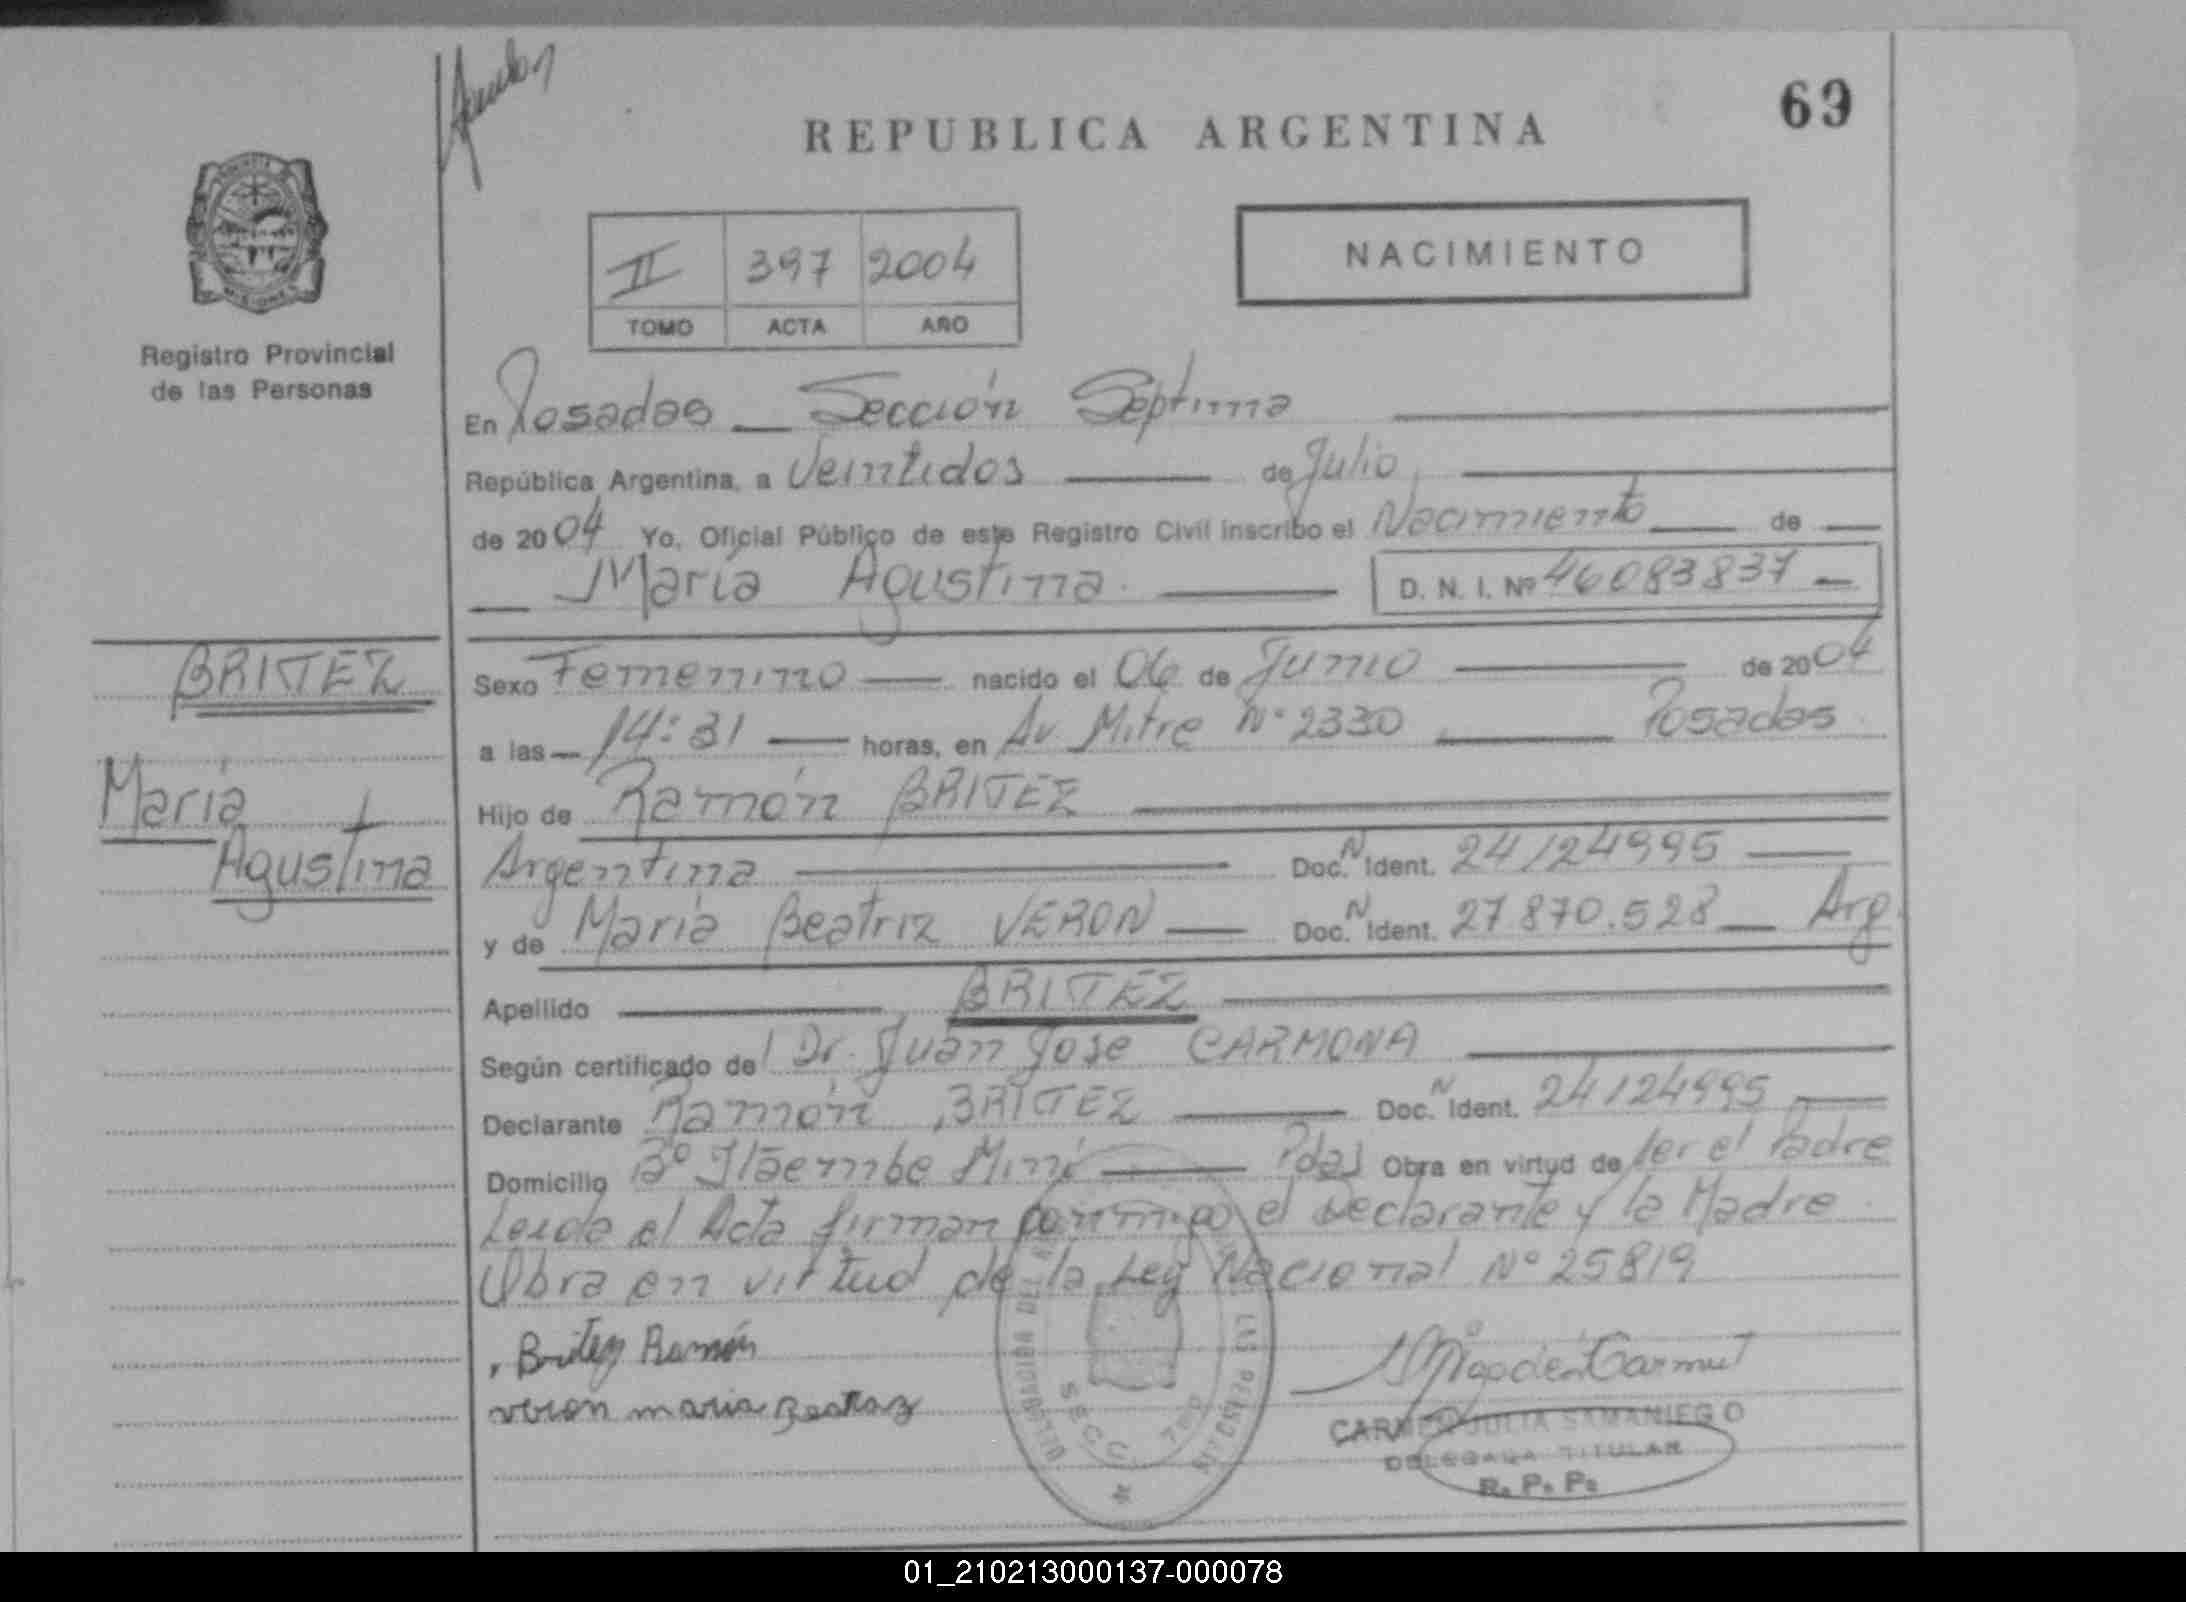 REPUBLICA ARGENTINA
69
NACIMIENTO
II 397 2004
TOMO ACTA AÑO
Registro Provincial
de las Personas
En Posadas — Sección Séptima
República Argentina, a Veintidos — de Julio
de 2004 Yo, Oficial Público de este Registro Civil inscribo el Nacimiento — de —
— María Agustina — D. N. I. Nº 46083837 —
BRITEZ
María
Agustina
Sexo Femenino — nacido el 06 de Junio — de 2004
a las — 14:31 — horas, en Av. Mitre Nº 2330 — Posadas
Hijo de Ramón BRITEZ
Argentina — Doc. N Ident. 24124995 —
y de María Beatriz VERON — Doc. N Ident. 27870.528 — Arg.
Apellido — BRITEZ
Según certificado de Dr. Juan Jose CARMONA
Declarante Ramón BRITEZ — Doc. N Ident. 24124995 —
Domicilio Bº Itaembe Miní — Pdas Obra en virtud de ser el Padre
Leida el Acta firman conmigo el Declarante y la Madre.
Obra en virtud de la Ley Nacional Nº 25819
Britez Ramón
veron maria Beatriz
CARMEN JULIA SAMANIEGO
DELEGADA TITULAR
R. P. P.
01_210213000137-000078